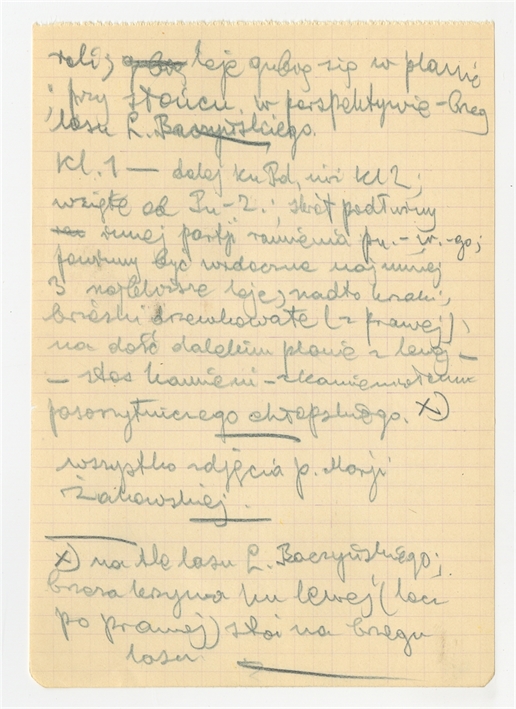 roli; leje gubią się w planie
i przy słońcu. w perspektywie – brzeg
lasu L. Baczyńskiego.
Kl. 1 — dalej ku Pd, niż Kl 2;
wzięte od Pn-Z.; skręt podłużny
innej partji ramienia pn.-w.-go;
powinny być widoczne najmniej
3 najbliższe leje; nadto krzaki,
brzózki drzewkowate (z prawej);
na dość dalekim planie z lewej –
– stos kamieni –
pasorzytniczego chłopskiego. x)
wszystko zdjęcia p. Marji
Żakowskiej.
x) na tle lasu L. Baczyńskiego;
brzoza krzywa ku lewej (lecz
po prawej) stoi na brzegu
lasu